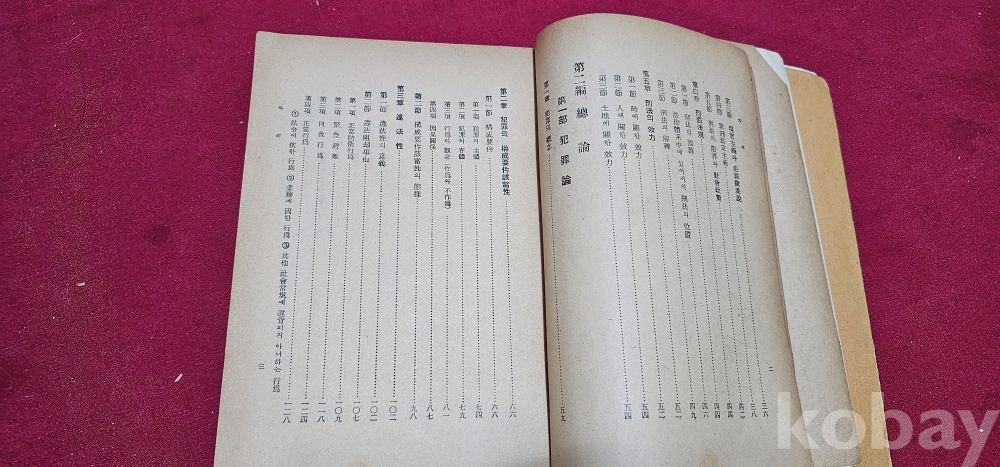 第三節 現實主義와 犯罪徵表說 三六
第四節 罪刑法定主義 三八
第五節 刑法의 限界와 社會政策 四二
第四章 刑罰法規 四四
第一節 刑法의 淵源 四四
第二節 法律體系中에 있어서의 刑法의 位置 四六
第三節 刑法의 解釋 四九
第五章 刑法의 效力 五二
第一節 時에 關한 效力 五二
第二節 人에 關한 效力 五四
第三節 土地에 關한 效力 五四
第二編 總論
第一部 犯罪論
第一章 犯罪의 概念 五九
二
第二章 犯罪의 構成要件該當性 六六
第一節 構成要件 六六
第一項 犯罪의 主體 七四
第二項 犯罪의 客體 七九
第三項 行爲의 觀念(作爲와 不作爲) 八一
第四項 因果關係 八七
第二節 構成要件該當性의 態樣 九八
第三章 違法性 一〇二
第一節 違法性의 意義 一〇二
第二節 違法阻却事由 一〇七
第一項 正當防衛行爲 一〇七
第二項 緊急避難 一〇九
第三項 自救行爲 一一八
第四項 正當行爲 一二四
① 法令에 依한 行爲 ② 業務에 因한 行爲 ③ 其他 社會常規에 違背되지 아니하는 行爲 一二八
目 次
三
kobay